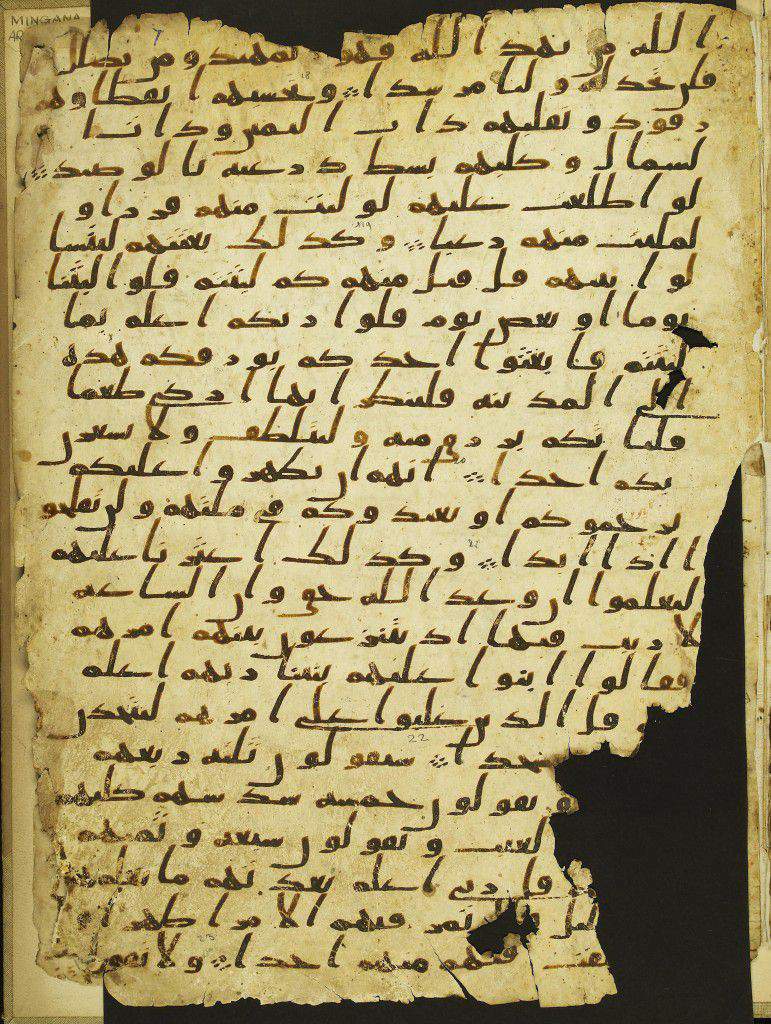 MINGANA
AR
7
الله من يهد الله فهو المهتد ومن يضلل
فلن تجد له وليا مرشدا وتحسبهم ايقظا وهم
رقود ونقلبهم ذات اليمين وذات ا
لشمال وكلبهم بسط ذرعيه بالوصيد
لو اطلعت عليهم لوليت منهم فررا و
لملئت منهم رعبا 19 وكذلك بعثنهم ليتسا
لوا بينهم قل قيل منهم كم لبثتم قلوا لبثنا
يوما او بعض يوم قلوا ربكم اعلم بما
لبثتم فابعثوا احدكم بورقكم هذه
الى المدينه فلينظر ايها ازكى طعما
فلياتكم برزق منه وليتلطف ولا يشعرن
بكم احدا انهم ان يظهروا عليكم
يرجموكم او يعيدوكم في ملتهم ولن تفلحو
ا اذا ابدا 21 وكذلك اعثرنا عليهم
ليعلموا ان وعد الله حق وان الساعه
لا ريب فيها اذ يتنزعون بينهم امرهم
فقالوا ابنوا عليهم بنينا ربهم اعلم
قل الذين غلبوا على امرهم لنتخذن
سجدا 22 سيقولون ثلثه ربعهم
ويقولون خمسه سدسهم كلبهم
لغيب ويقولون سبعه وثمنهم
قل ربي اعلم بعدتهم ما يعلمهم
قليل فلا تمر فيهم الا مرا ظهرا
فيهم منهم احدا 23 ولا تقولن